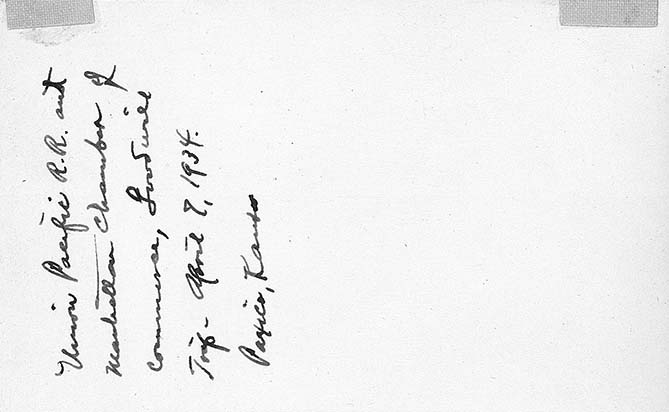 Union Pacific R.R. and
Manhattan Chamber of
Commerce, Goodwill
Trip - April 7, 1934.
Paxico, Kansas